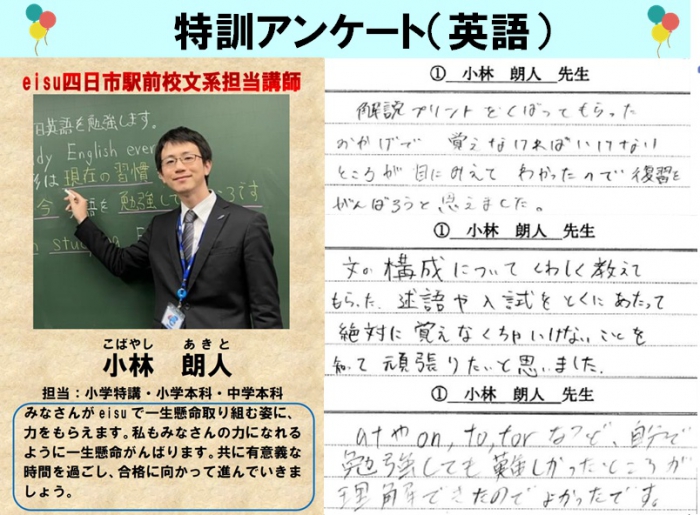 特訓アンケート(英語)
eisu四日市駅前校文系担当講師
日英語を勉強します。
dy English ever
は 現在の習慣
今 語を勉強して ころです
studying E
こばやし あきと
小林 朗人
担当:小学特講・小学本科・中学本科
みなさんがeisuで一生懸命取り組む姿に、
力をもらえます。私もみなさんの力になれる
ように一生懸命がんばります。共に有意義な
時間を過ごし、合格に向かって進んでいきま
しょう。
① 小林 朗人 先生
解説プリントをくばってもらった
おかげで 覚えなければいけない
ところが目にみえてわかったので復習を
がんばろうと思えました。
① 小林 朗人 先生
文の構成についてくわしく教えて
もらった。述語や入試をとくにあたって
絶対に覚えなくちゃいけないことを
知って頑張りたいと思いました。
① 小林 朗人 先生
atやon,to,forなど、自分で
勉強しても難しかったところが
理解できたのでよかったです。